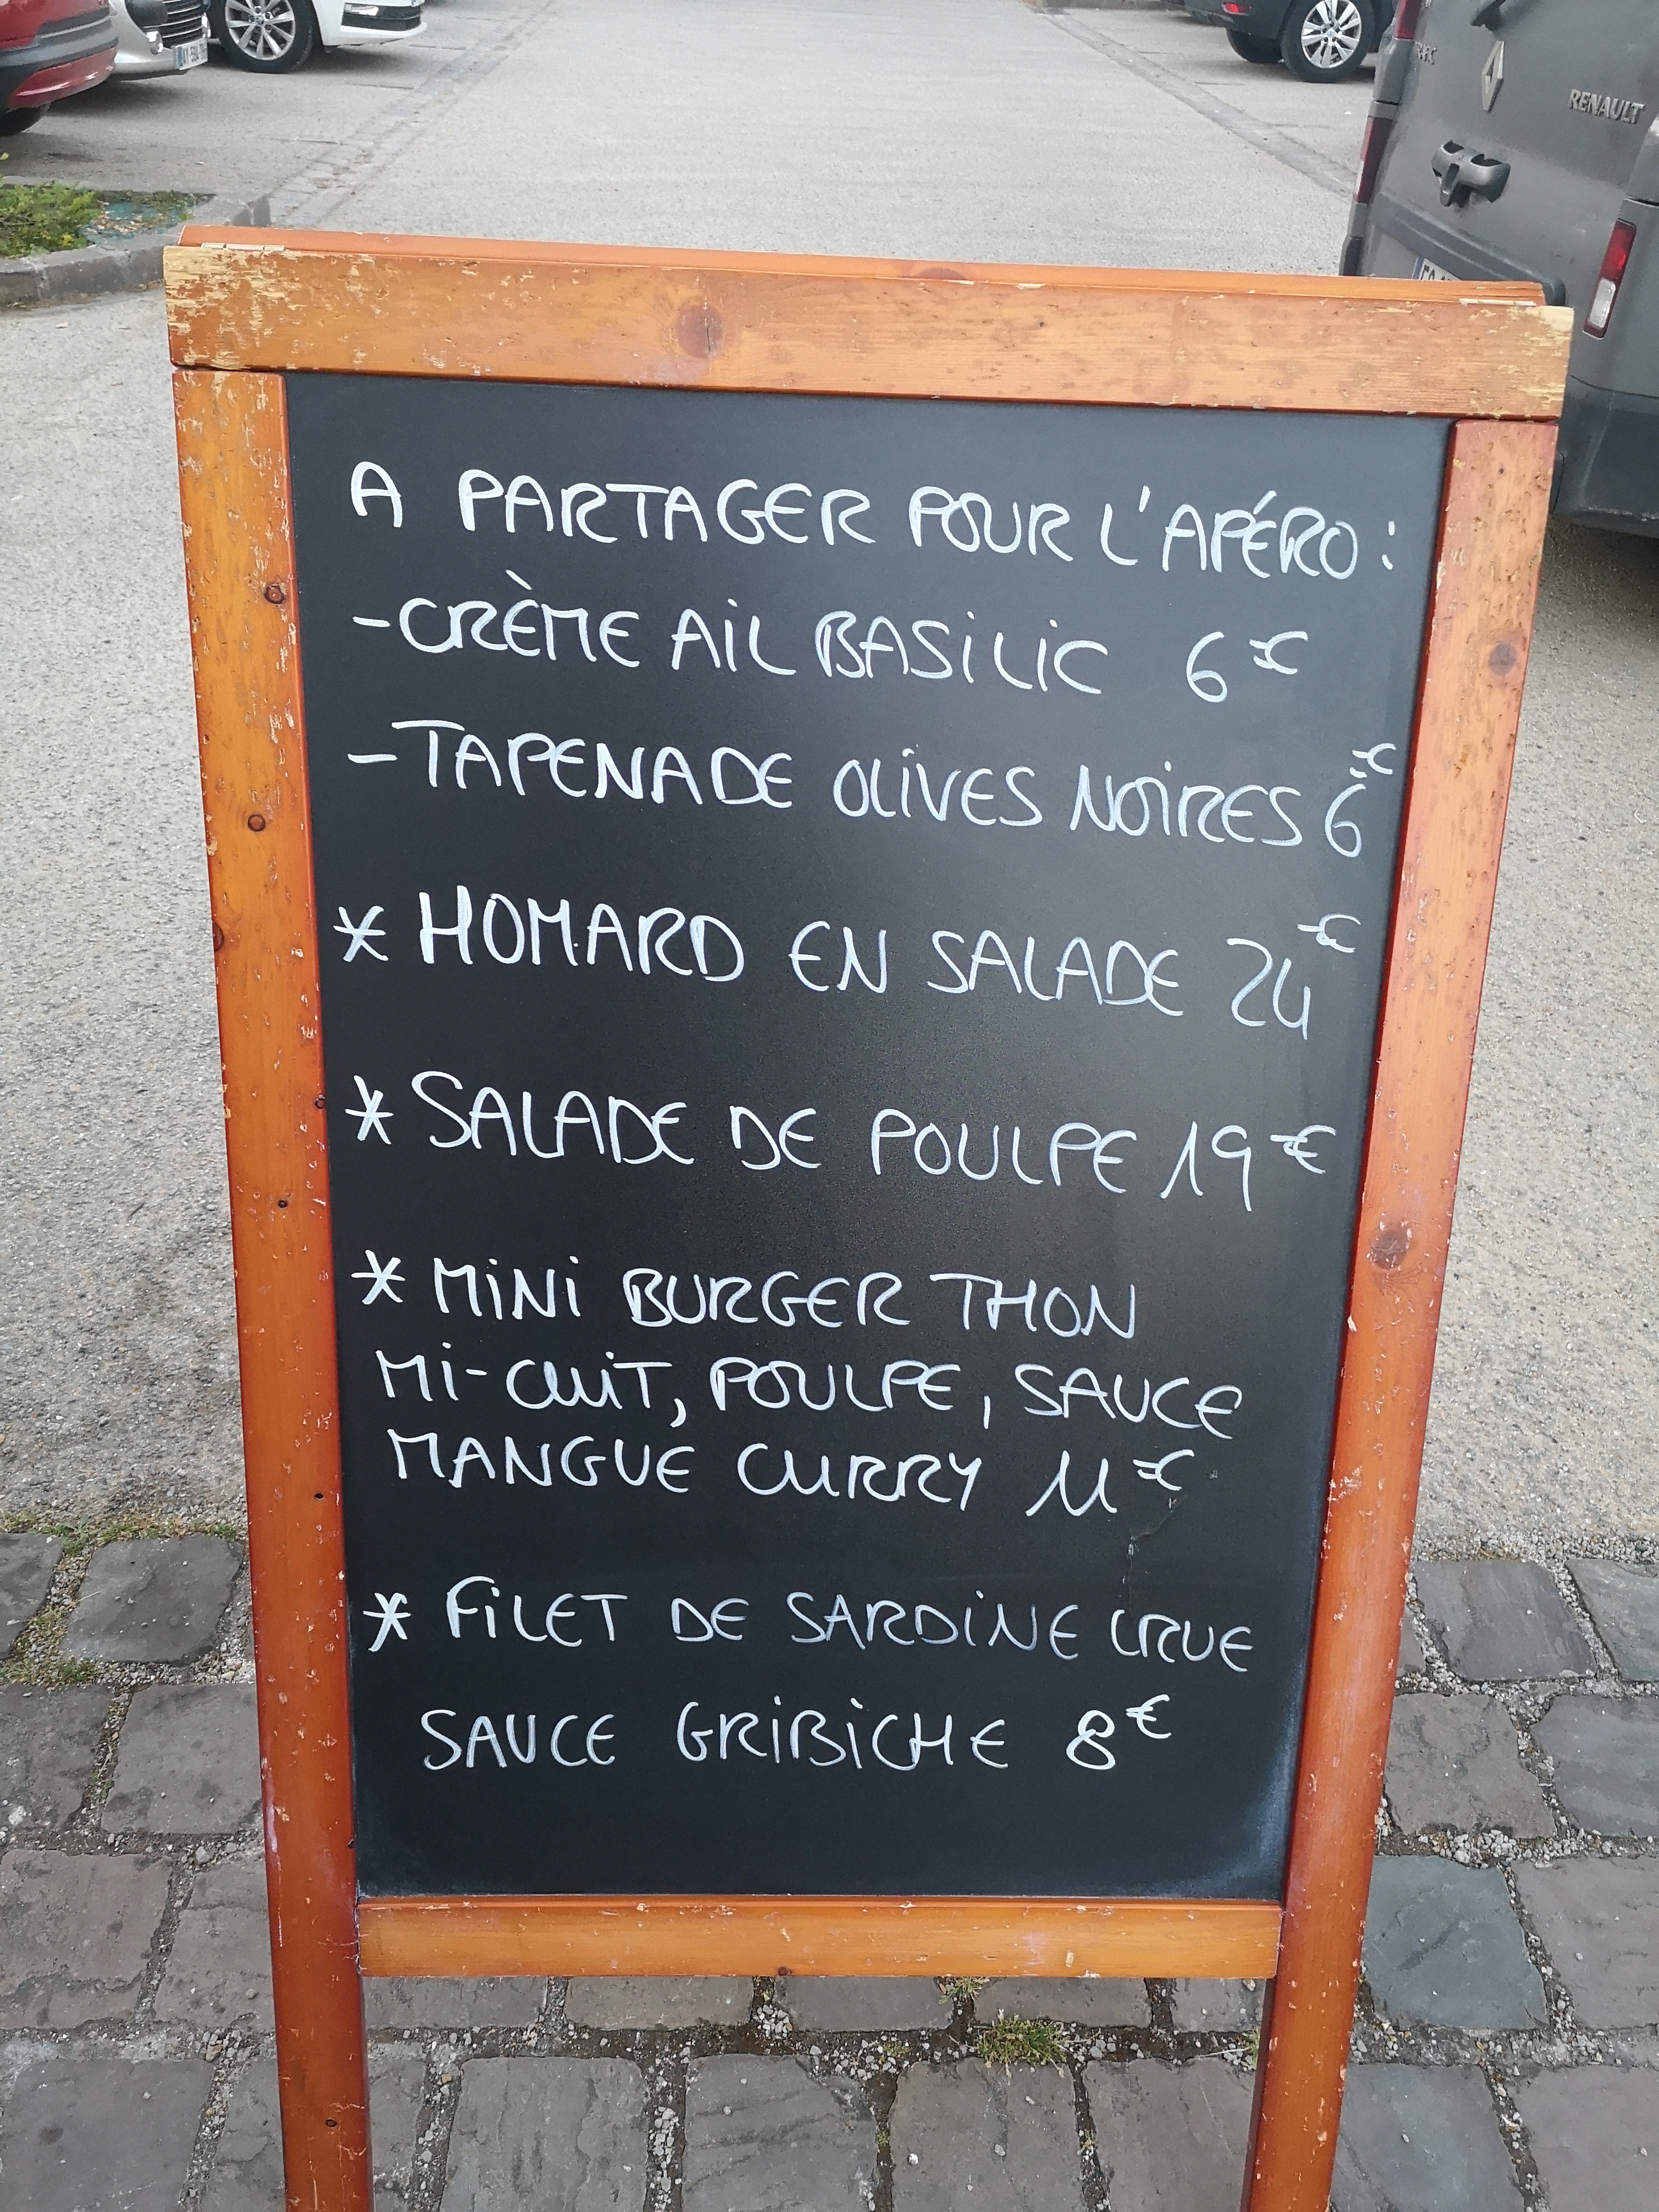 RENAULT
A PARTAGER POUR L'APÉRO :
- CRÈME AIL BASILIC 6€
- TAPENADE OLIVES NOIRES 6€
* HOMARD EN SALADE 24€
* SALADE DE POULPE 19€
* MINI BURGER THON
MI-CUIT, POULPE, SAUCE
MANGUE CURRY 11€
* FILET DE SARDINE CRUE
SAUCE GRIBICHE 8€